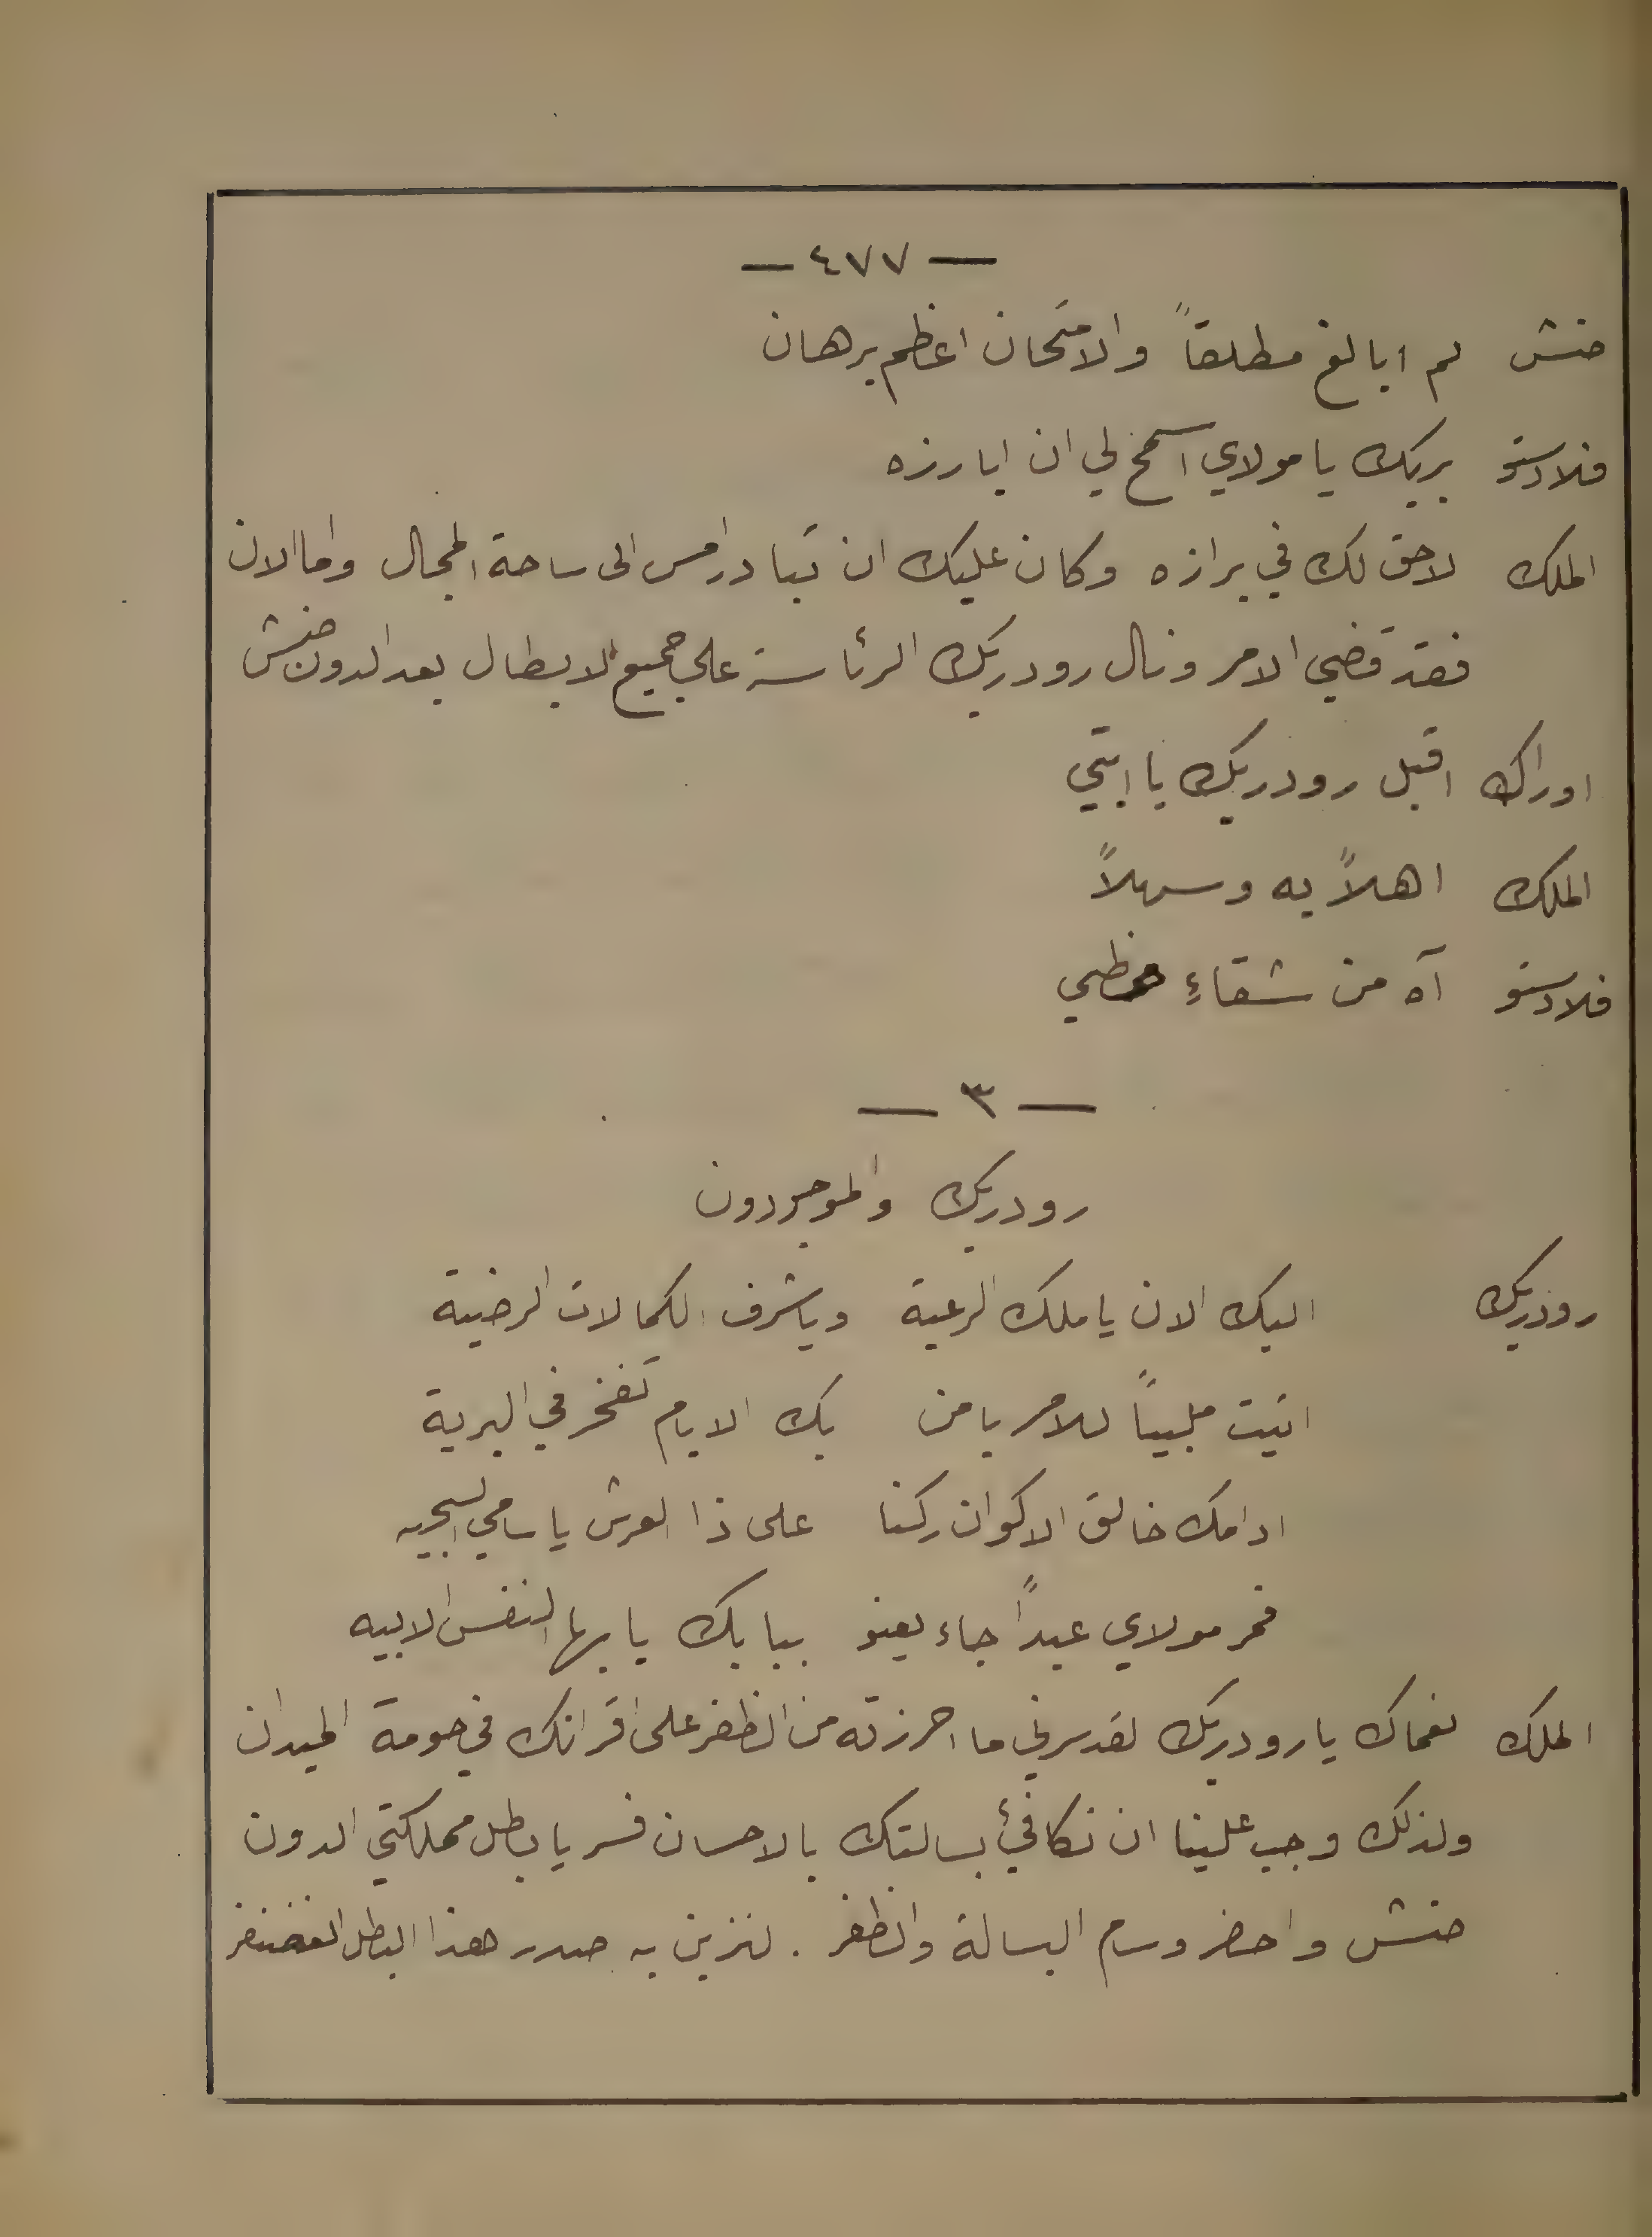 — ٤٧٧ —
حنش لم ابالغ مطلقاً والامتحان اعظم برهان
فلادستو بربك يا مولاي اسمح لي ان ابارزه
الملك لاحق لك في برازه وكان عليك ان تبادر امس الى ساحة المجال واما الان
فقد قضي الامر ونال رودريك الرئاسة على جميع الابطال بعد الدون حنش
اوراك اقبل رودريك يا ابتي
الملك اهلاً به وسهلاً
فلادستو آه من شقاءِ حظي
— ٣ —
رودريك والموجودون
رودريك اليك الان يا ملك الرعية ويا شرف الكمالات الرضية
اتيت ملبياً للامر يا من بك الايام تفخر في البرية
ادامك خالق الاكوان ركنا على ذا العرش يا سامي السجيه
فمر مولاي عبداً جاء يعنو ببابك يا بها النفس الابيه
الملك نعماك يا رودريك لقد سرني ما احرزته من الظفر على اقرانك في حومة الميدان
ولذلك وجب علينا ان نكافئ بسالتك بالاحسان فسر يا بطل مملكتي الدون
حنش واحضر وسام البسالة والظفر . لنزين به صدر هذا البطل الغضنفر